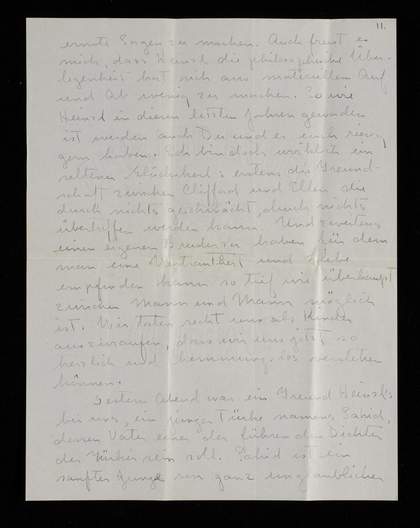 11.
ernste Sorgen zu machen. Auch freut es
mich, dass Heinsd die philosophische Über-
legenheit hat sich aus materiellen Auf
und Ab wenig zu machen. So wie
Heinsd in diesen letzten Jahren geworden
ist werden auch Du und es euch riesig
gern haben. Ich bin doch wirklich ein
seltener Glückskerl: erstens die Freund-
schaft zwischen Clifford und Ellen die
durch nichts geschwächt, durch nichts
übertroffen werden kann. Und zweitens
einen eigenen Bruder zu haben für den
man eine Vertrautheit und Liebe
empfinden kann so tief wie überhaupt
zwischen Mann und Mann möglich
ist. Wir taten recht uns als Kinder
dass wir uns jetzt so
herzlich und hemmungslos verstehen
können.
Gestern Abend war ein Freund Heinsd's
bei uns, ein junger Türke namens
dessen Vater einer der führenden Dichter
der Türkei sein soll. ist ein
sanfter Junge von ganz unglaublicher